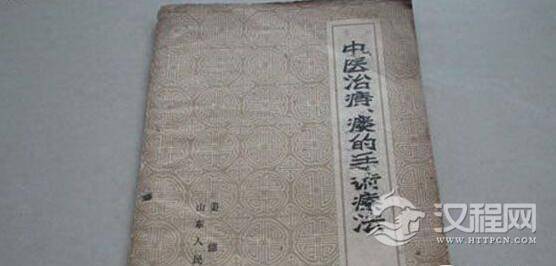 中医治痔、瘘的手術療法
姜
山東人民
汉程网
WWW.HTTPCN.COM